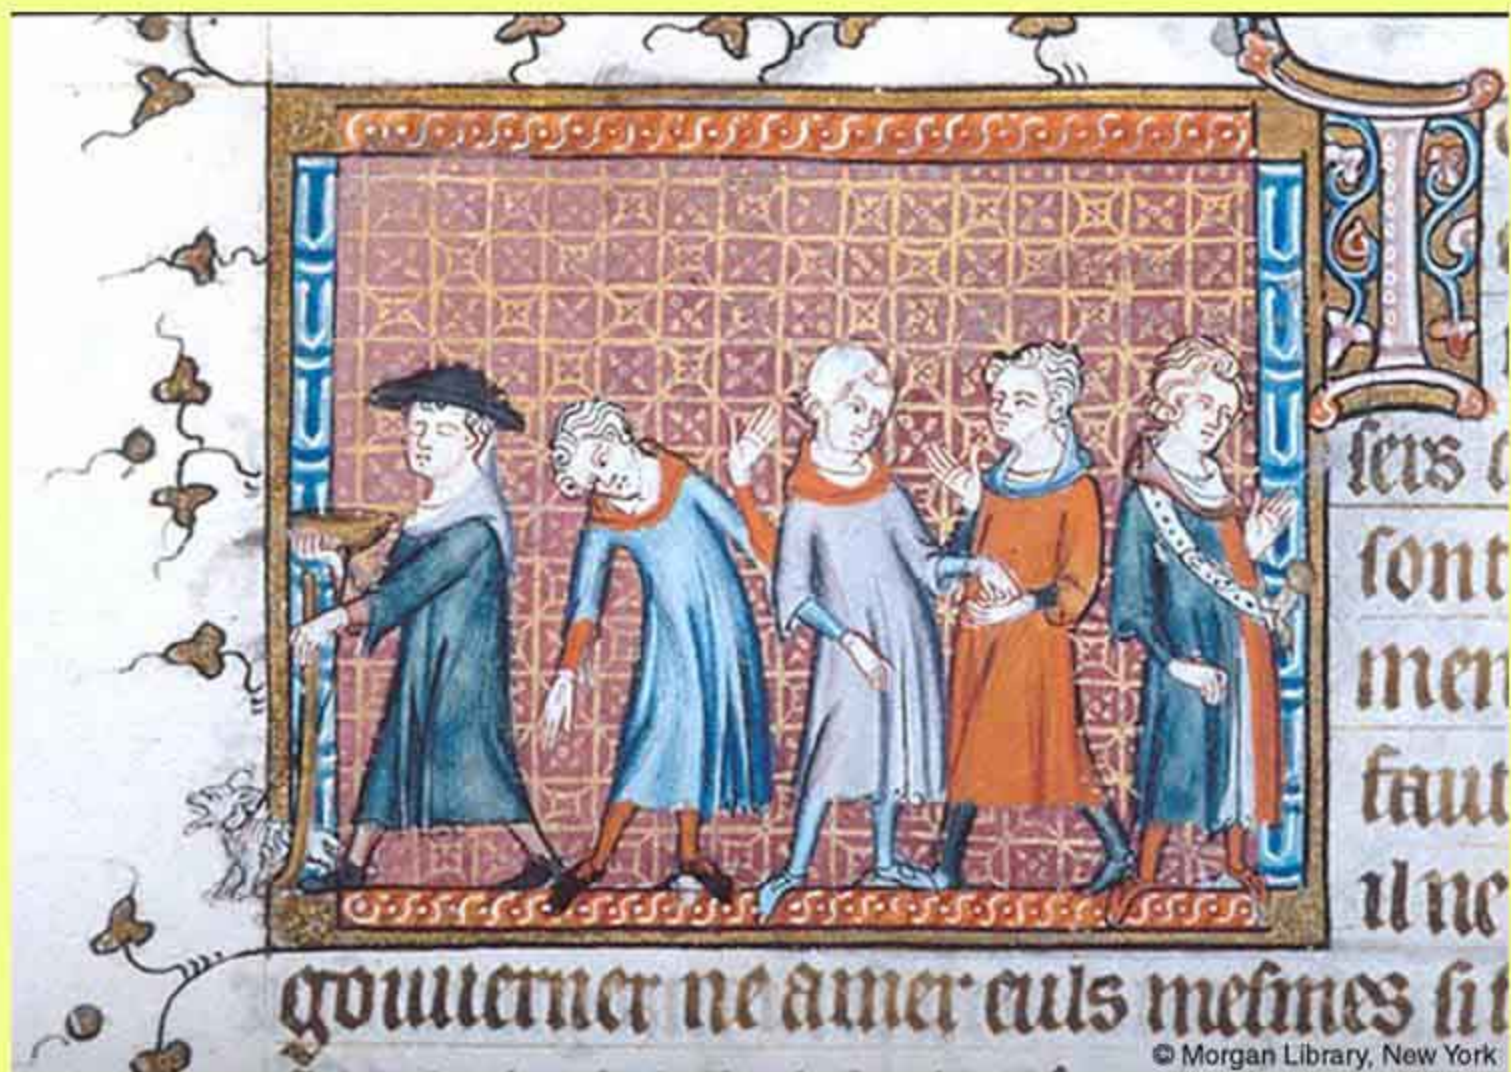 ſeıs
ſont
men
faut
il ne
gouuerner ne amer euls meſmes ſi
© Morgan Library, New York